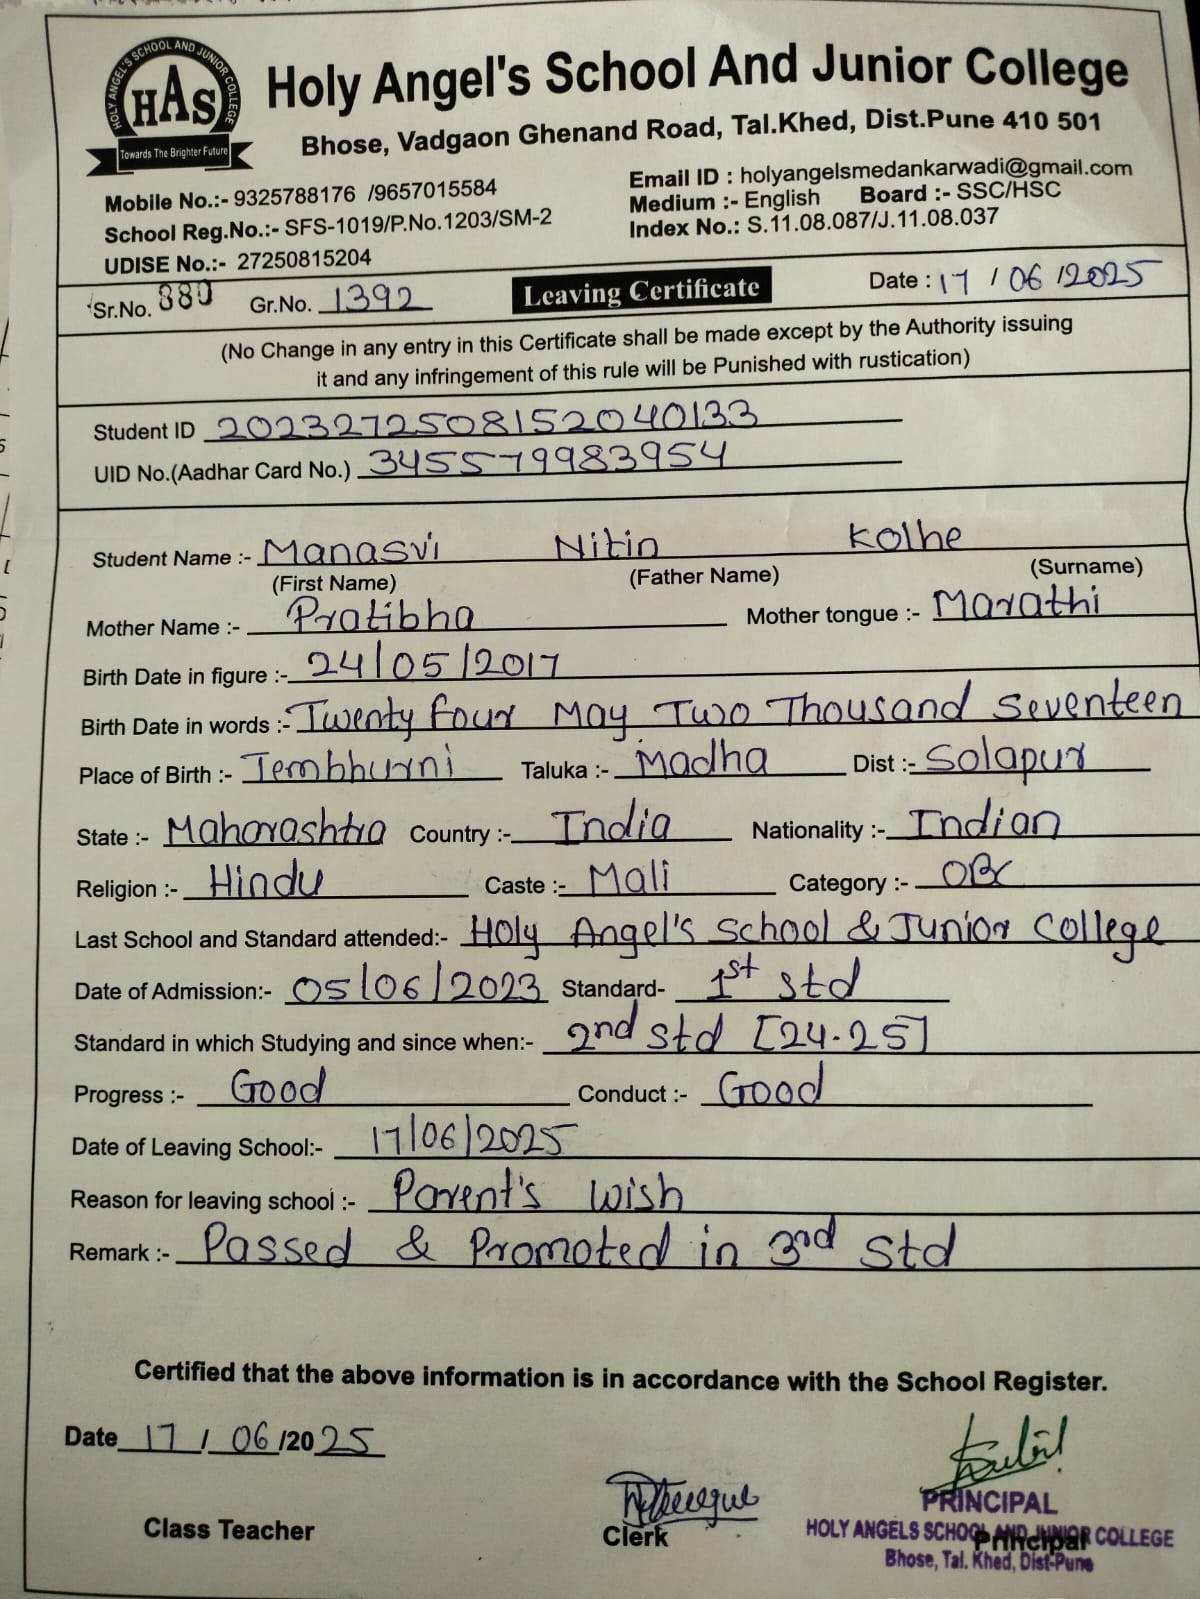 HOLY ANGEL'S SCHOOL AND JUNIOR COLLEGE
HAS
Towards The Brighter Future
Holy Angel's School And Junior College
Bhose, Vadgaon Ghenand Road, Tal.Khed, Dist.Pune 410 501
Mobile No.:- 9325788176 /9657015584
Email ID : holyangelsmedankarwadi@gmail.com
School Reg.No.:- SFS-1019/P.No.1203/SM-2
Medium :- English Board :- SSC/HSC
UDISE No.:- 27250815204
Index No.: S.11.08.087/J.11.08.037
Sr.No. 880 Gr.No. 1392 Leaving Certificate Date : 17 / 06 /2025
(No Change in any entry in this Certificate shall be made except by the Authority issuing
it and any infringement of this rule will be Punished with rustication)
Student ID 2023272508152040133
UID No.(Aadhar Card No.) 345579983954
Student Name :- Manasvi Nitin Kolhe
(First Name) (Father Name) (Surname)
Mother Name :- Pratibha Mother tongue :- Marathi
Birth Date in figure :- 24/05/2017
Birth Date in words :- Twenty four May Two Thousand Seventeen
Place of Birth :- Tembhurni Taluka :- Madha Dist :- Solapur
State :- Maharashtra Country :- India Nationality :- Indian
Religion :- Hindu Caste :- Mali Category :- OBC
Last School and Standard attended:- Holy Angel's School & Junior College
Date of Admission:- 05/06/2023 Standard- 1st std
Standard in which Studying and since when:- 2nd std [24-25]
Progress :- Good Conduct :- Good
Date of Leaving School:- 17/06/2025
Reason for leaving school :- Parent's wish
Remark :- Passed & Promoted in 3rd Std
Certified that the above information is in accordance with the School Register.
Date 17 / 06 /2025
Class Teacher
Clerk
PRINCIPAL
HOLY ANGELS SCHOOL AND JUNIOR COLLEGE
Principal
Bhose, Tal. Khed, Dist-Pune